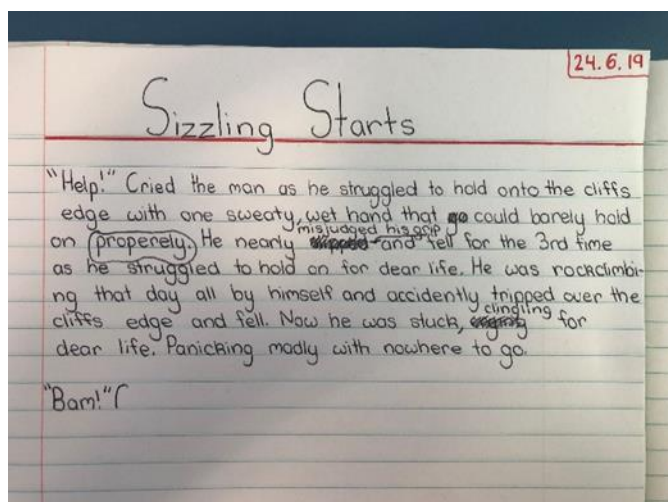 24.6.19
Sizzling Starts
"Help!" Cried the man as he struggled to hold onto the cliffs
edge with one sweaty, wet hand that go could barely hold
on properely. He nearly misjudged his grip and fell for the 3rd time
as he struggled to hold on for dear life. He was rockclimbi-
ng that day all by himself and accidently tripped over the
cliffs edge and fell. Now he was stuck, clingling for
dear life. Panicking madly with nowhere to go.
"Bam!"